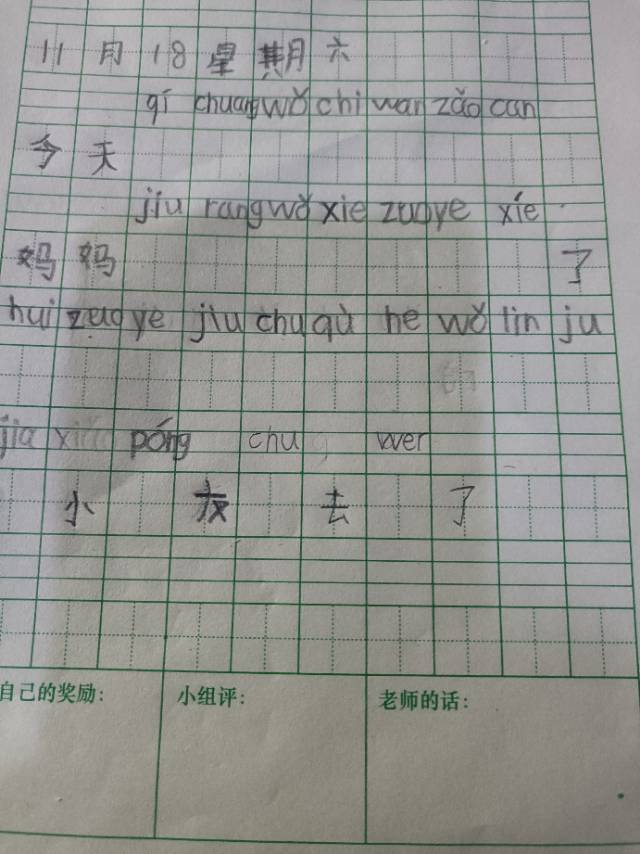 11月18星期六
qí chuang wǒ chi wan zǎo can
今天
jiu rang wǒ xie zuoye xíe
妈妈 了
hui zuo ye jiu chu qù he wǒ lin ju
jia xiao póng chu wer
小 友 去 了
自己的奖励: 小组评: 老师的话: